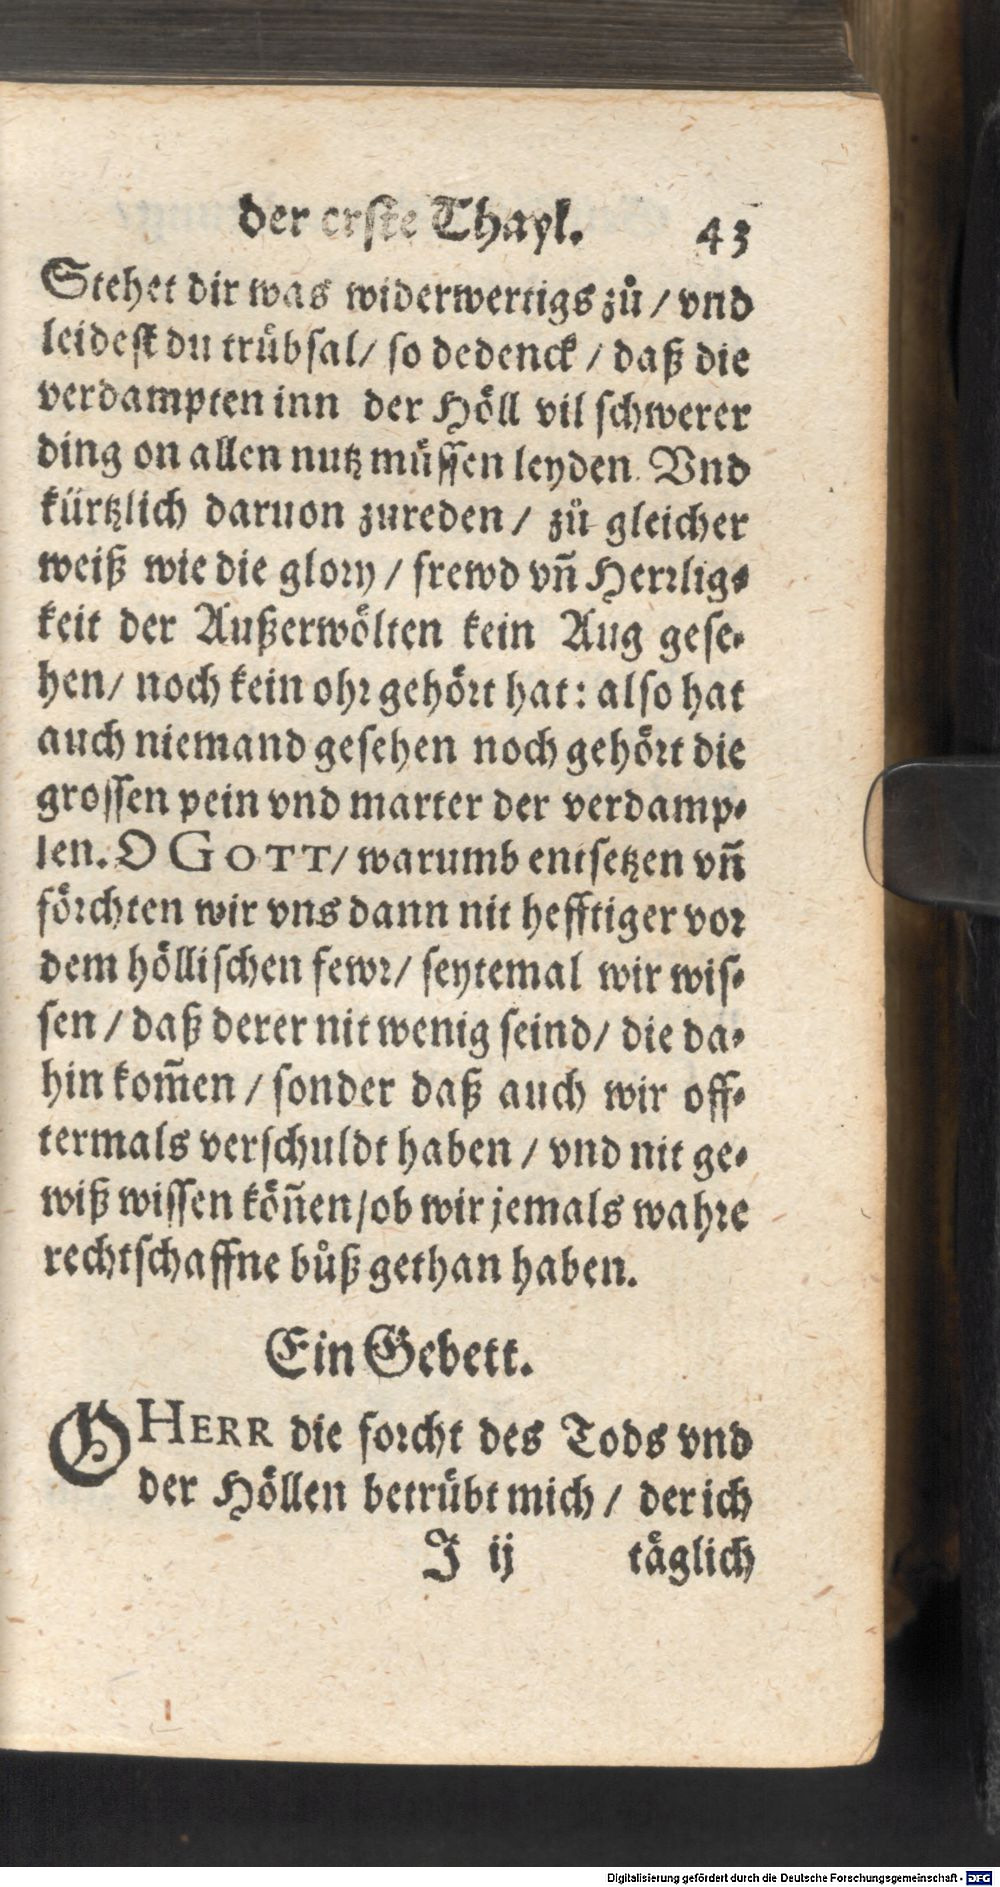 der erste Thayl. 43
Stehet dir was widerwertigs zů / vnd
leidest du trübsal / so dedenck / daß die
verdampten inn der Höll vil schwerer
ding on allen nutz müssen leyden. Vnd
kürtzlich daruon zureden / zů gleicher
weiß wie die glory / frewd vn̄ Herrlig-
keit der Außerwölten kein Aug gese-
hen / noch kein ohr gehört hat: also hat
auch niemand gesehen noch gehört die
grossen pein vnd marter der verdamp-
len. O GOTT / warumb entsetzen vn̄
förchten wir vns dann nit hefftiger vor
dem höllischen fewr / seytemal wir wis-
sen / daß derer nit wenig seind / die da-
hin kom̄en / sonder daß auch wir off-
termals verschuldt haben / vnd nit ge-
wiß wissen kön̄en / ob wir jemals wahre
rechtschaffne bůß gethan haben.
Ein Gebett.
O HERR die forcht des Tods vnd
der Höllen betrübt mich / der ich
J ij täglich
Digitalisierung gefördert durch die Deutsche Forschungsgemeinschaft - DFG